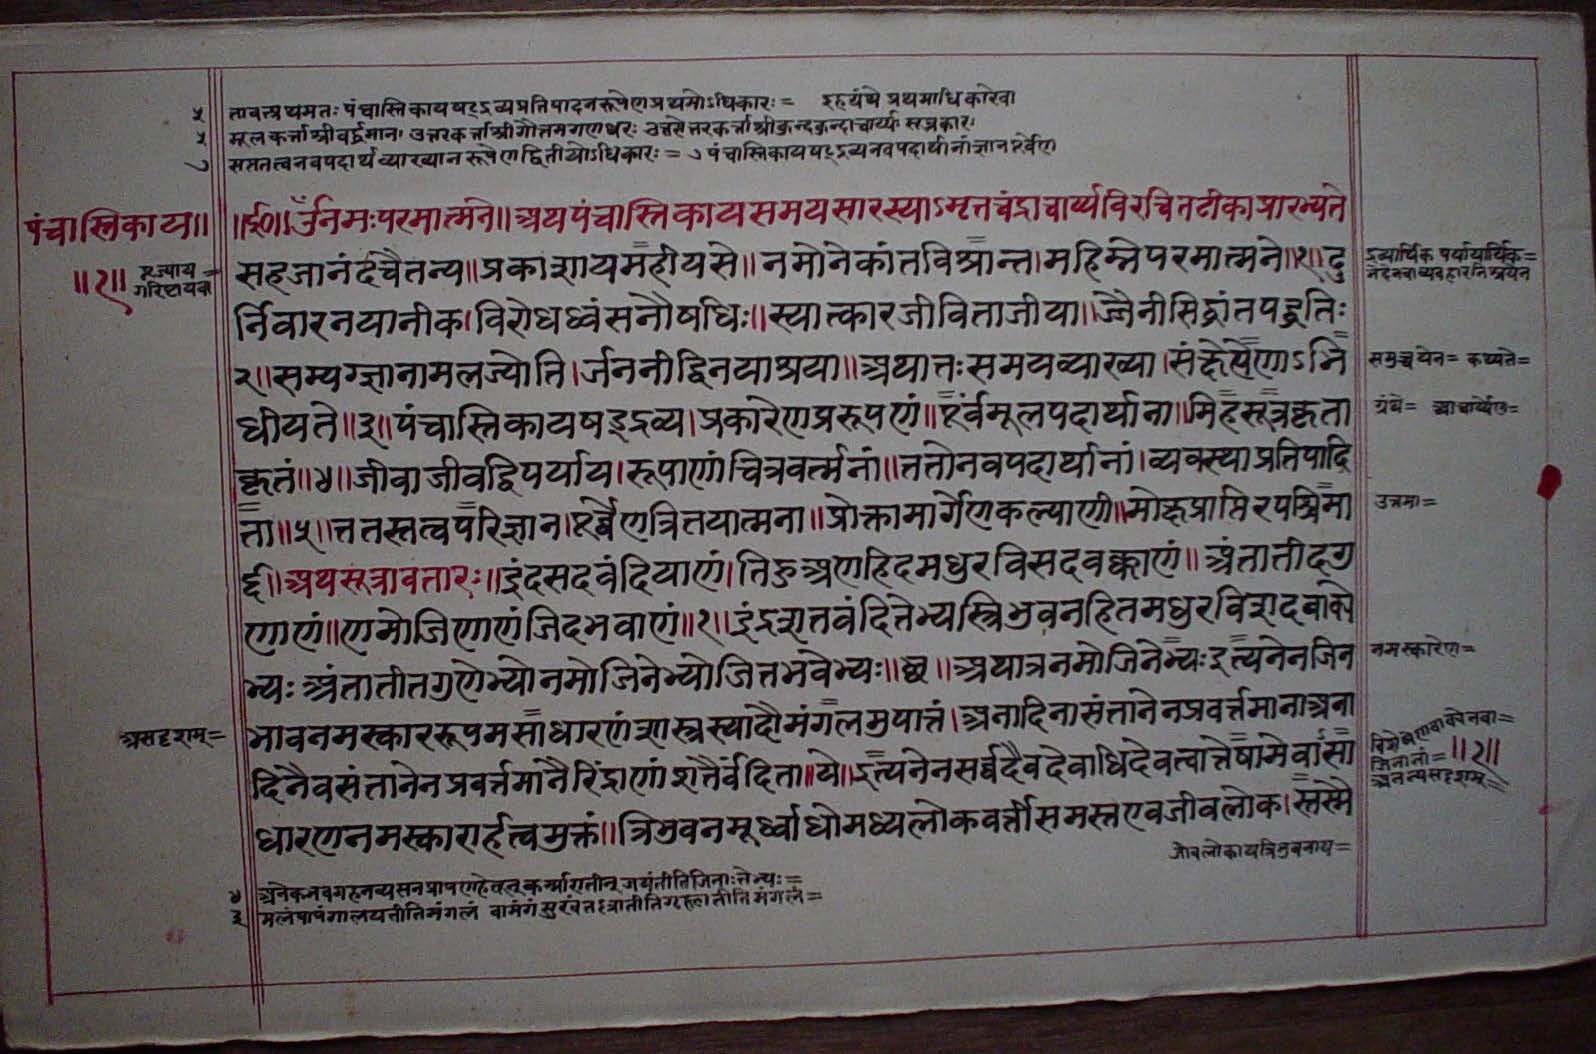 ५ तावत्प्रथमतः पंचास्तिकायषट्द्रव्यप्रतिपादनरूपेण प्रथमोऽधिकारः = इह ग्रंथे प्रथमाधिकारेवा
५ मूलकर्त्ता श्रीवर्द्धमानः उत्तरकर्त्ता श्रीगौतमगणधरः उत्तरोत्तरकर्त्ता श्रीकुन्दकुन्दाचार्य्यः सूत्रकारः
७ सप्ततत्वनवपदार्थव्याख्यानरूपेण द्वितीयोऽधिकारः = ७ पंचास्तिकायषट्द्रव्यनवपदार्थानां ज्ञानपूर्वेण
पंचास्तिकाय॥
॥१॥
पूज्याय =
गरिष्टायवा
॥र्द०॥ ॐनमःपरमात्मने॥अथपंचास्तिकायसमयसारस्याऽमृतचंद्राचार्य्यविरचितटीकाप्रारभ्यते
सहजानंदचैतन्य॥प्रकाशायमहीयसे॥नमोनेकांतविश्रान्त।महिम्नेपरमात्मने॥१॥दु
र्निवारनयानीक।विरोधध्वंसनौषधिः॥स्यात्कारजीविताजीया।ज्जैनीसिद्धांतपद्धतिः
२॥सम्यग्ज्ञानामलज्योति।र्जननीद्विनयाश्रया॥अथात्तःसमयव्याख्या।संक्षेपेणाऽभि
धीयते॥३॥पंचास्तिकायषड्द्रव्य।प्रकारेणप्ररूपणं॥पूर्वंमूलपदार्थाना।मिहसूत्रकृता
कृतं॥४॥जीवाजीवद्विपर्याय।रूपाणांचित्रवर्त्मनां॥ततोनवपदार्थानां।व्यवस्थाप्रतिपादि
ता॥५॥ततस्तत्वपरिज्ञान।पूर्वेणत्रितयात्मना॥प्रोक्तामार्गेणकल्याणी॥मोक्षप्राप्तिरपश्चिमा
६॥अथसूत्रावतारः॥इंदसदवंदियाणं।तिहुअणहिदमधुरविसदवक्काणं॥अंतातीदगु
णाणं॥णमोजिणाणंजिदभवाणं॥१॥इंद्रशतवंदितेभ्यस्त्रिभुवनहितमधुरविशदवाक्ये
भ्यः अंतातीतगुणेभ्योनमोजिनेभ्योजितभवेभ्यः॥छ॥अथात्रनमोजिनेभ्यःइत्यनेनजिन
भावनमस्काररूपमसाधारणंशास्त्रस्यादौमंगलमुपात्तं।अनादिनासंतानेनप्रवर्त्तमानाअना
दिनैवसंतानेनप्रवर्त्तमानैरिंद्राणांशतैर्वंदिता॥ये।इत्यनेनसर्वदैवदेवाधिदेवत्वात्तेषामेवासा
धारणनमस्कारार्हत्वमुक्तं॥त्रिभुवनमूर्ध्वाधोमध्यलोकवर्त्तीसमस्तएवजीवलोक।स्तस्मै
द्रव्यार्थिक पर्यायार्थिक=
भेदेनवाव्यवहारनिश्चयेन
समुच्चयेन= कथ्यते=
ग्रंथे= आचार्य्येण=
उत्तमा=
नमस्कारेण=
असदृशम्=
जिनानां= ॥१॥
अनन्यसदृशम्=
जीवलोकायत्रिभुवनाय=
४ अनेकभवगहनव्यसनप्रापणहेतून् कर्म्मारातीन् जयंतीतिजिनाः तेभ्यः=
३ मलंपापंगालयतीतिमंगलं वामंगंसुखंतत्लातीतिगृह्णातीतिमंगलं=